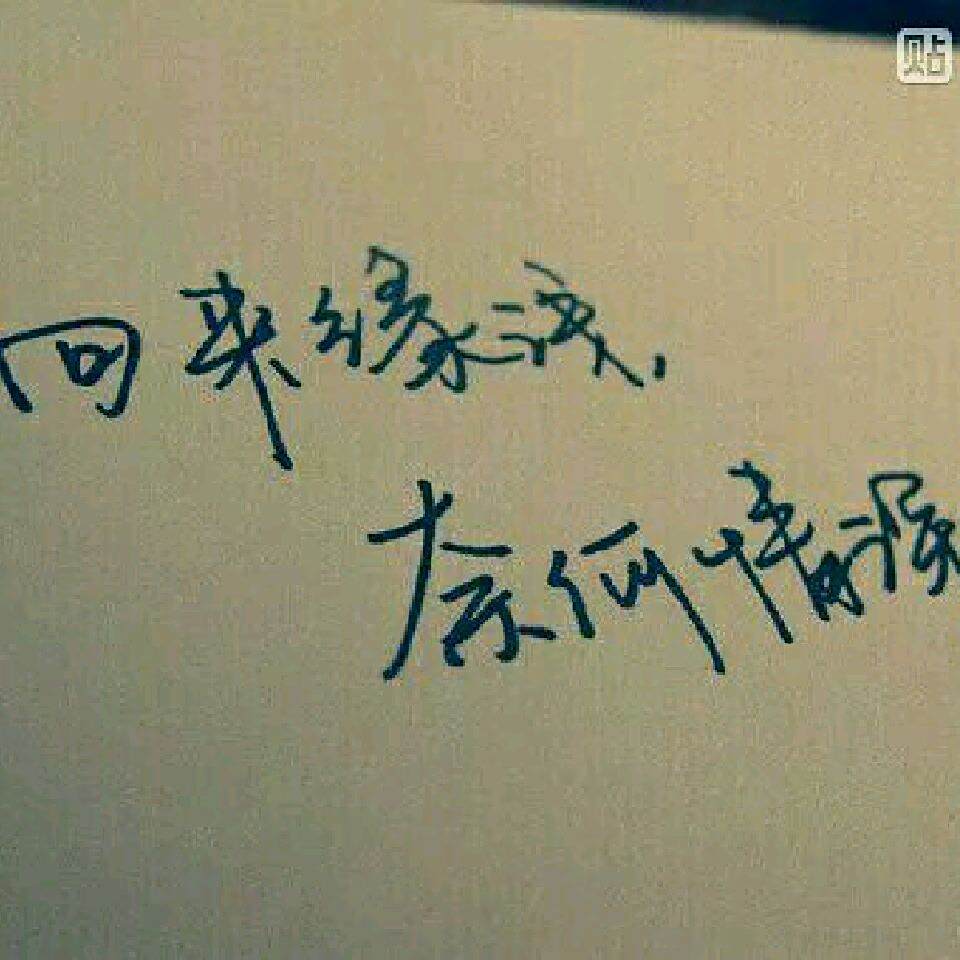 贴
向来缘浅,
奈何情深